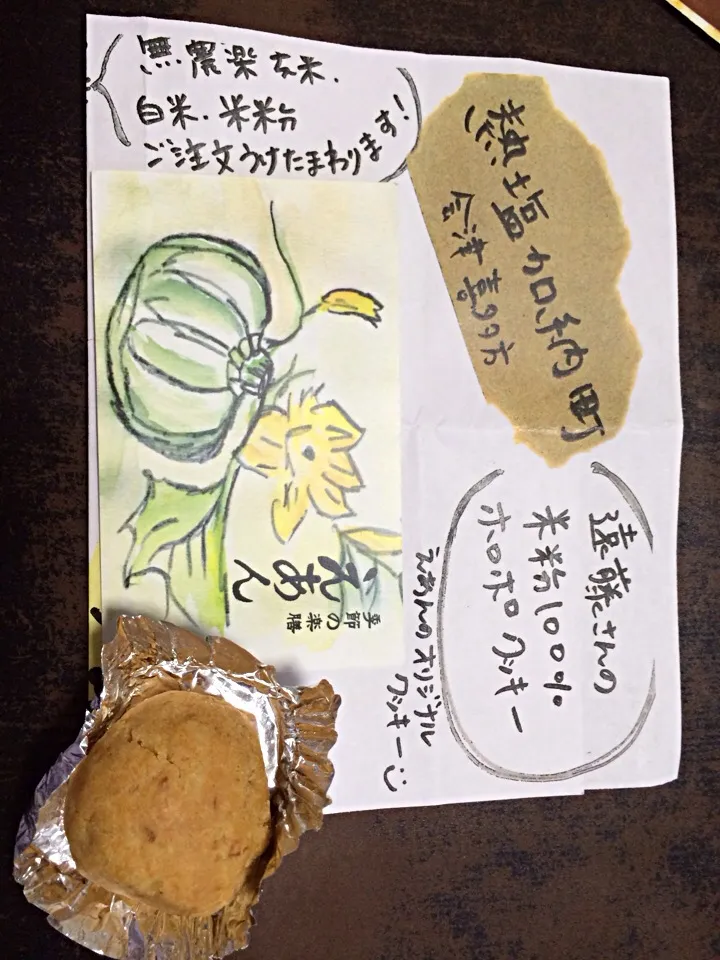 無農薬玄米、
白米、米粉
ご注文うけたまわります!
熱塩加納町
会津喜多方
遠藤さんの
米粉100%
ホロホロクッキー
えあんのオリジナル
クッキー
季節の楽膳
えあん